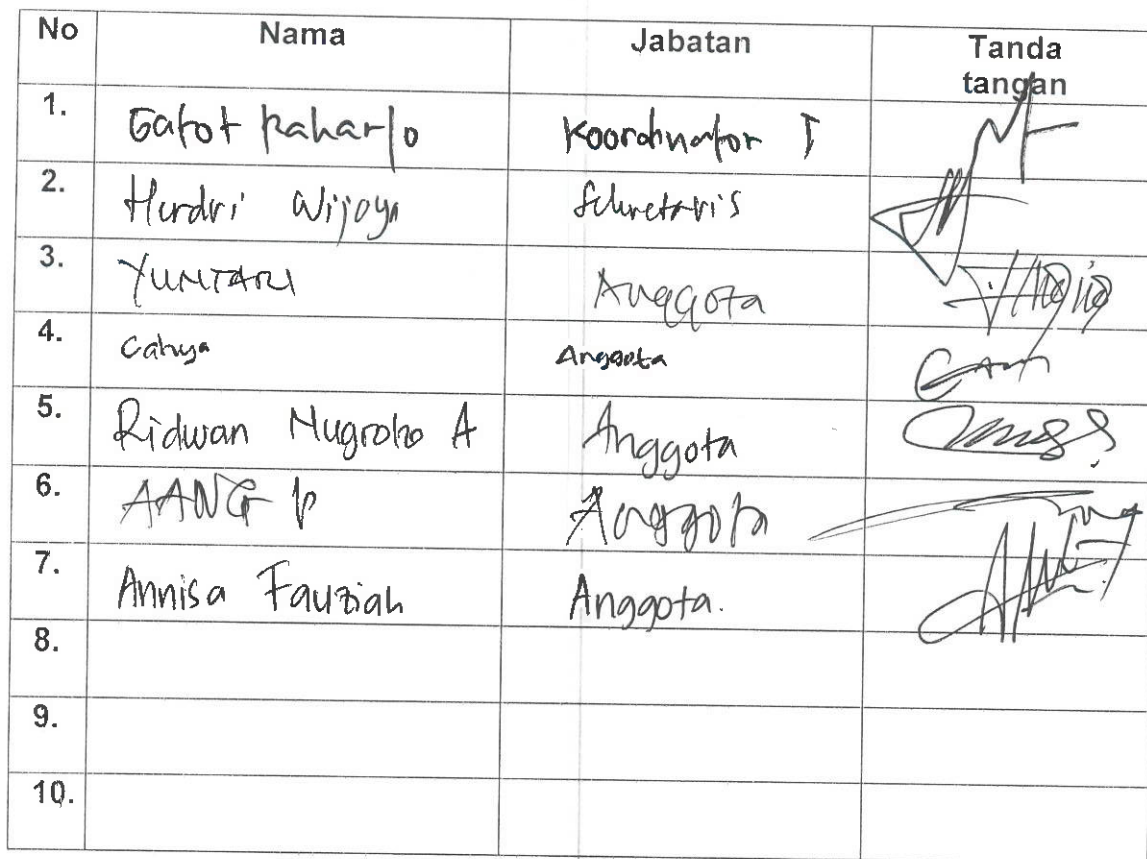 No Nama Jabatan Tanda tangan
1. Gatot Raharjo Koordinator I
2. Hendri Wijaya Sekretaris
3. YUNITARI Anggota
4. Cahya Anggota
5. Ridwan Nugroho A Anggota
6. AANG P Anggota
7. Annisa Fauziah Anggota.
8.
9.
10.